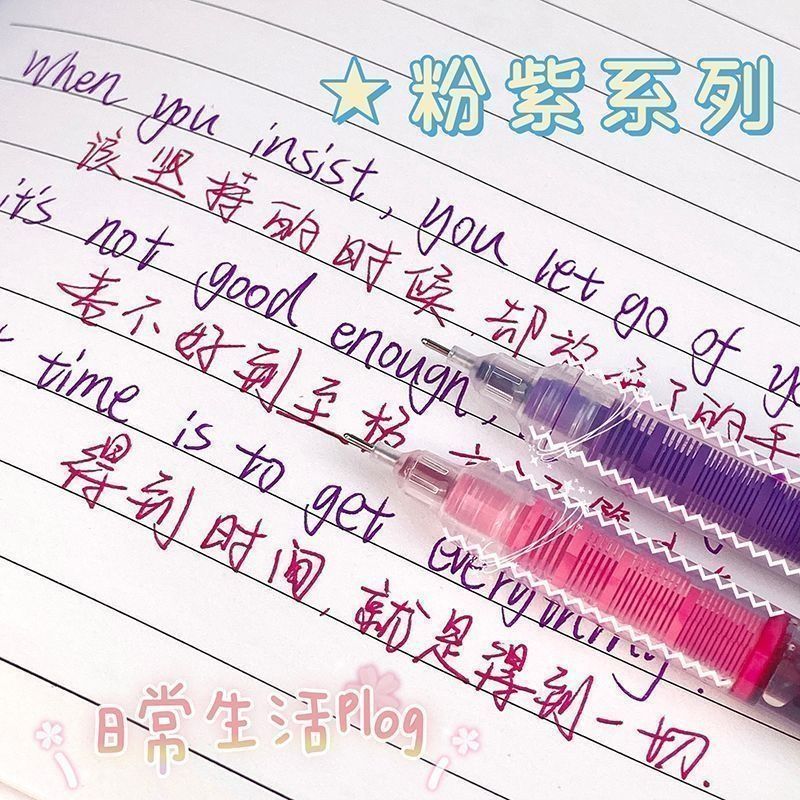 ★粉紫系列
When you insist, you let go of
该坚持的时候,却放弃了的手
it's not good enough,
若不好到至极,
time is to get everything.
得到时间,就是得到一切.
日常生活Plog